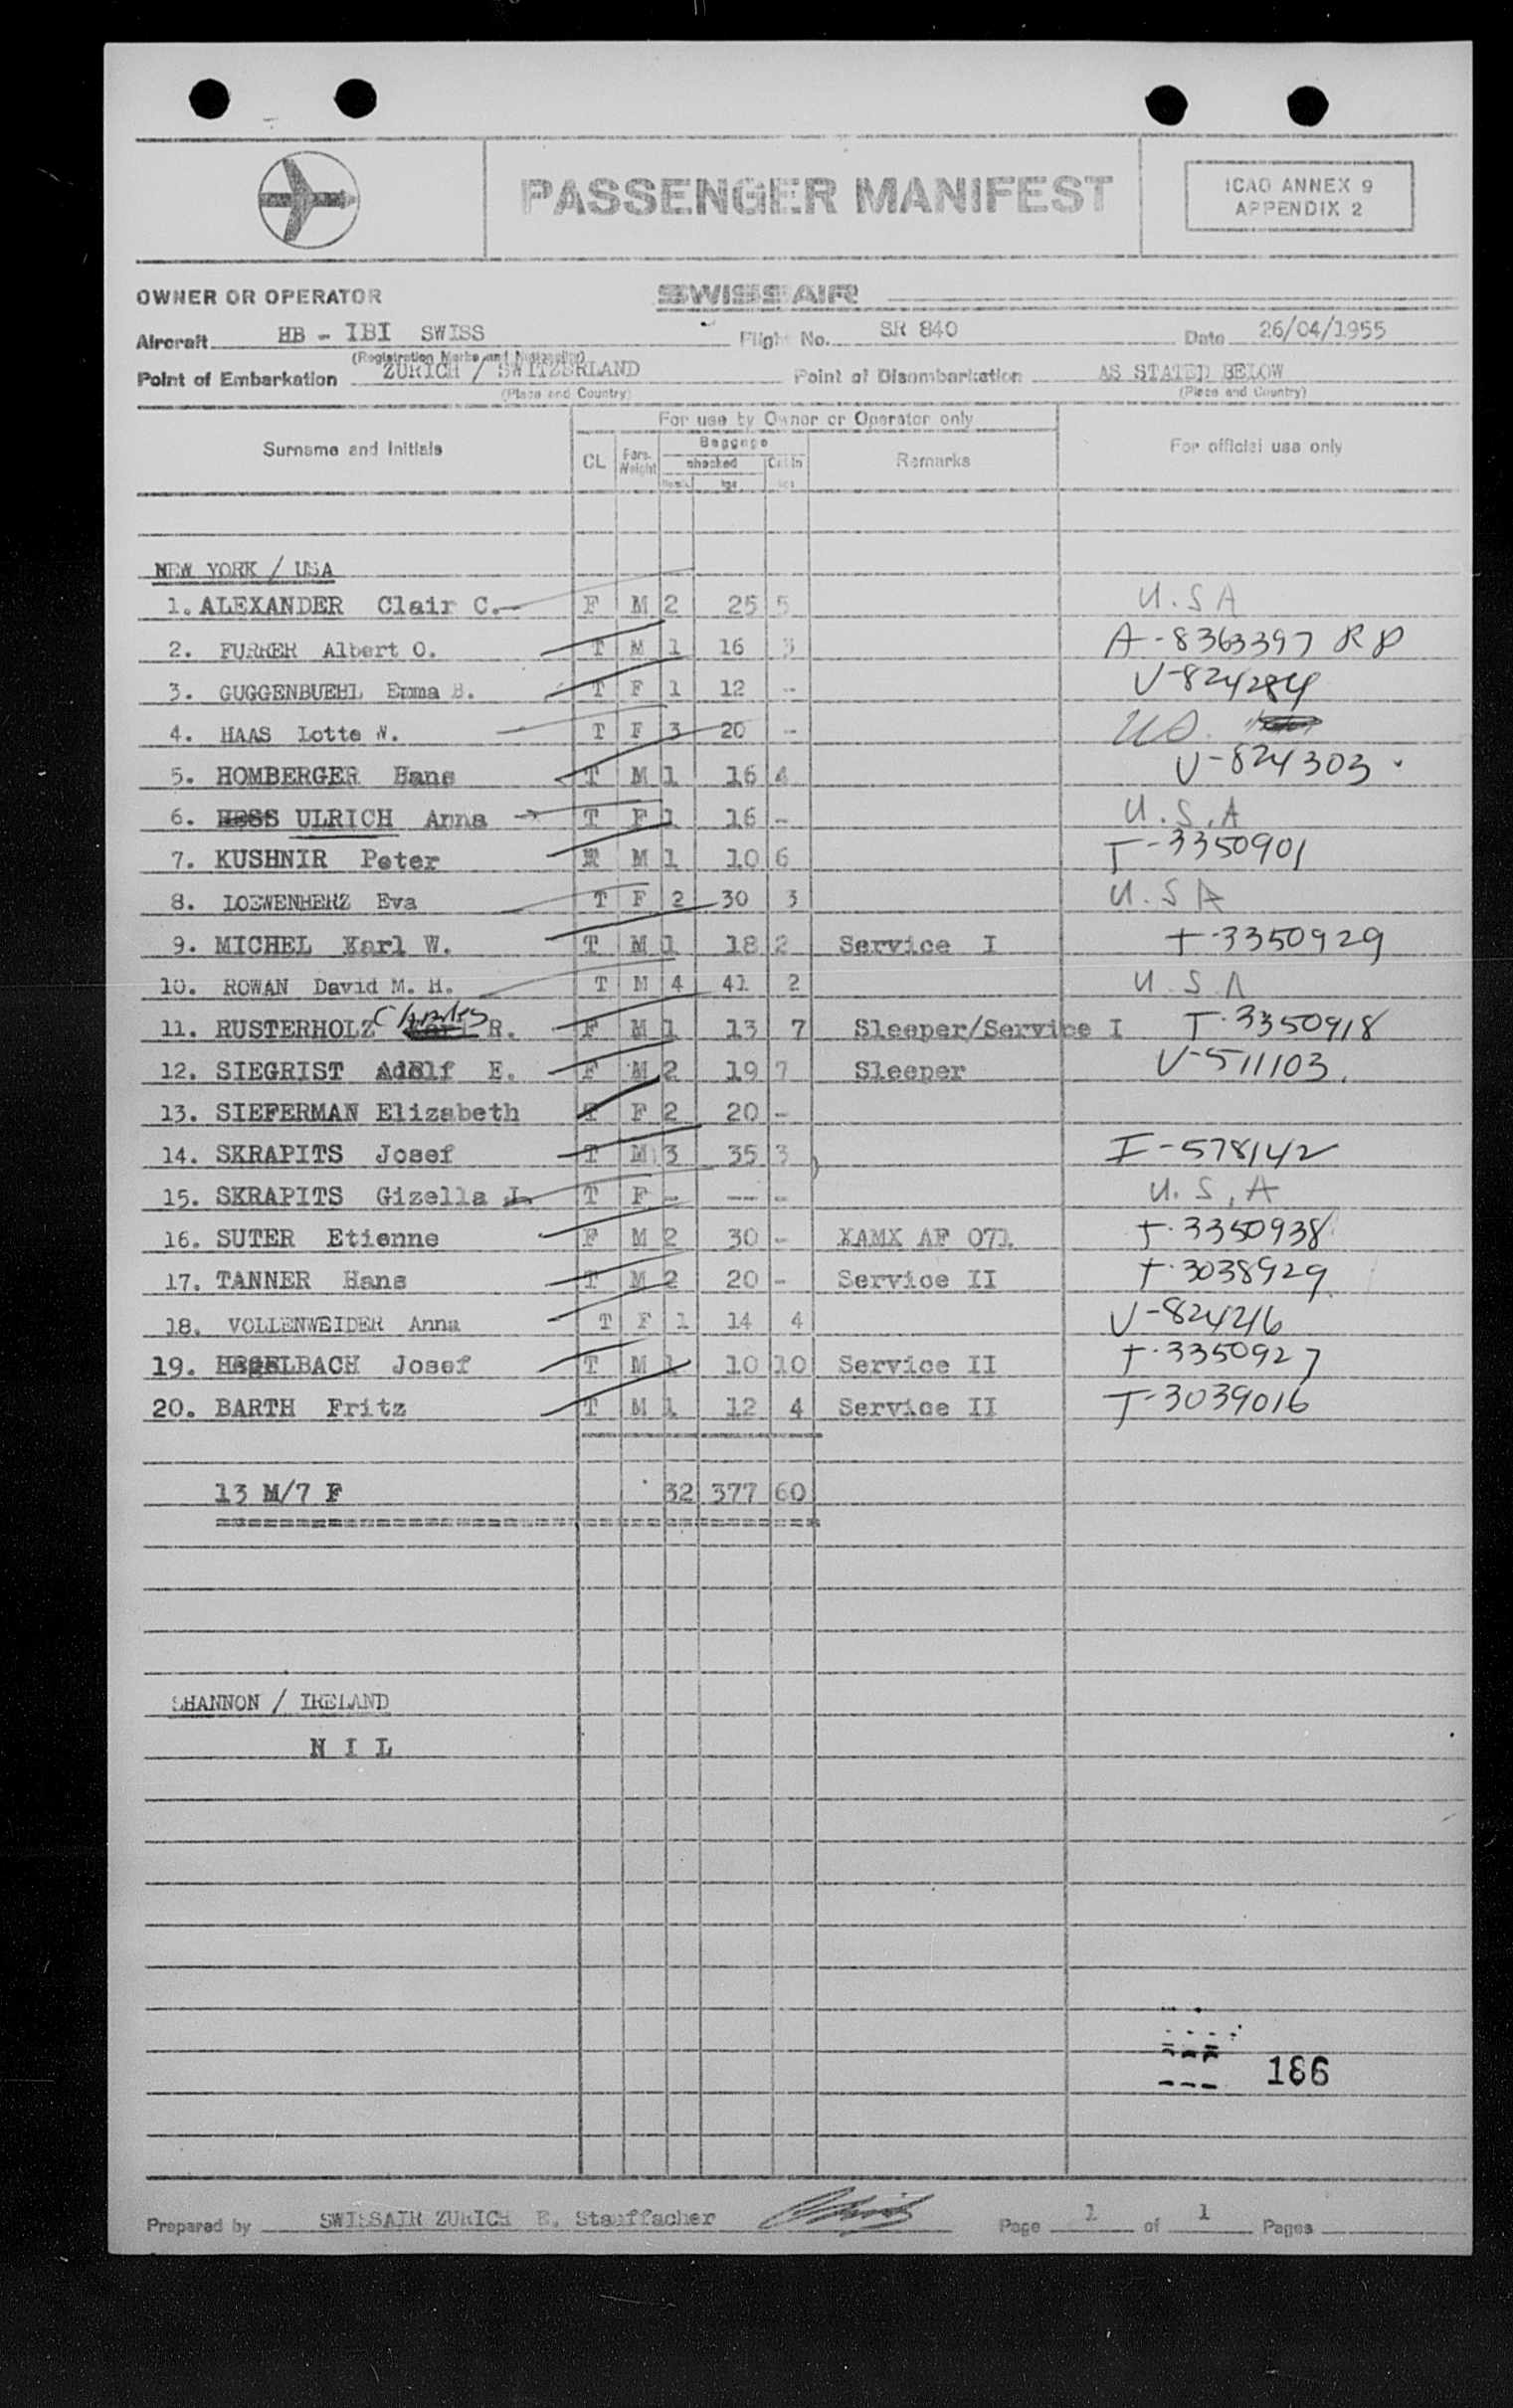 PASSENGER MANIFEST
ICAO ANNEX 9
APPENDIX 2
OWNER OR OPERATOR SWISSAIR
Aircraft HB - IBI SWISS Flight No. SR 840 Date 26/04/1955
(Registration Marks and Nationality)
Point of Embarkation ZURICH / SWITZERLAND Point of Disembarkation AS STATED BELOW
(Place and Country) (Place and Country)
For use by Owner or Operator only
Surname and Initials CL Pers. Weight Baggage checked Cab in Remarks For official use only
kgs
NEW YORK / USA
1. ALEXANDER Clair C. F M 2 25 5 U.S A
2. FURRER Albert O. T M 1 16 3 A-8363397 RP
3. GUGGENBUEHL Emma B. T F 1 12 - V-824284
4. HAAS Lotte W. T F 3 20 - US.
5. HOMBERGER Hans T M 1 16 4 V-824303
6. HESS ULRICH Anna T F 1 16 - U.S.A
7. KUSHNIR Peter M 1 10 6 T-3350901
8. LOEWENHERZ Eva T F 2 30 3 U.S A
9. MICHEL Karl W. T M 1 18 2 Service I T-3350929
10. ROWAN David M. H. T M 4 41 2 U.S.A
11. RUSTERHOLZ Charles R. F M 1 13 7 Sleeper/Service I T-3350918
12. SIEGRIST Adolf E. F M 2 19 7 Sleeper V-511103
13. SIEFERMAN Elizabeth T F 2 20 -
14. SKRAPITS Josef T M 3 35 3 I-578142
15. SKRAPITS Gizella I. T F - -- - U.S.A
16. SUTER Etienne F M 2 30 - XAMX AF 071 T-3350938
17. TANNER Hans T M 2 20 - Service II T-3038929
18. VOLLENWEIDER Anna T F 1 14 4 V-824216
19. HEGELBACH Josef T M 1 10 10 Service II T-3350927
20. BARTH Fritz T M 1 12 4 Service II T-3039016
13 M/7 F 32 377 60
SHANNON / IRELAND
N I L
166
Prepared by SWISSAIR ZURICH E. Stauffacher Page 1 of 1 Pages